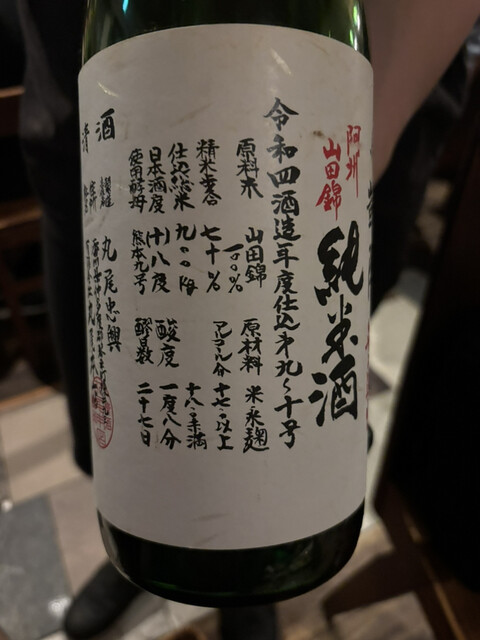 阿州
山田錦
純米酒
令和四酒造年度仕込み第九〜十号
原料米 山田錦 一〇〇% 原材料 米・米麹
精米歩合 七十% アルコール分 十七・〇以上 十八・〇未満
仕込総米 九〇〇kg
日本酒度 (+)八度 酸度 一度八分
使用酵母 熊本九号 醪日数 二十七日
清酒
丸尾忠興